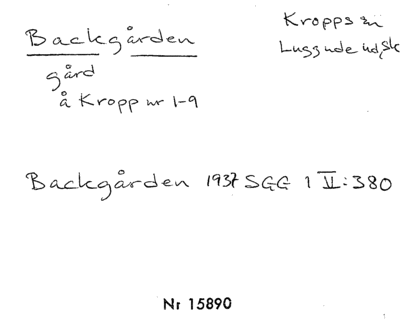 Backgården
gård
å Kropp nr 1-9
Kropps sn
Luggude hd, Sk
Backgården 1937 SGG 1 II:380
Nr 15890